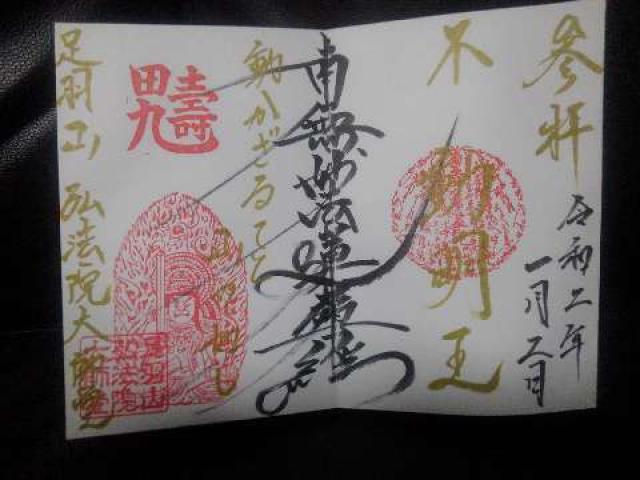 参拝
令和二年
一月二日
不動明王
南無妙法蓮華経
動かざること
山の如し
足羽山 弘法院大師堂